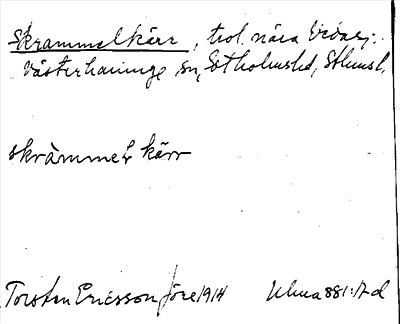 Skrammelkärr, trol. nära Vidar;:
Västerhaninge sn, Sotholmshd, Sthmsl.
skràmmel kärr
Torsten Ericsson före 1914 Ulma 881:17 d